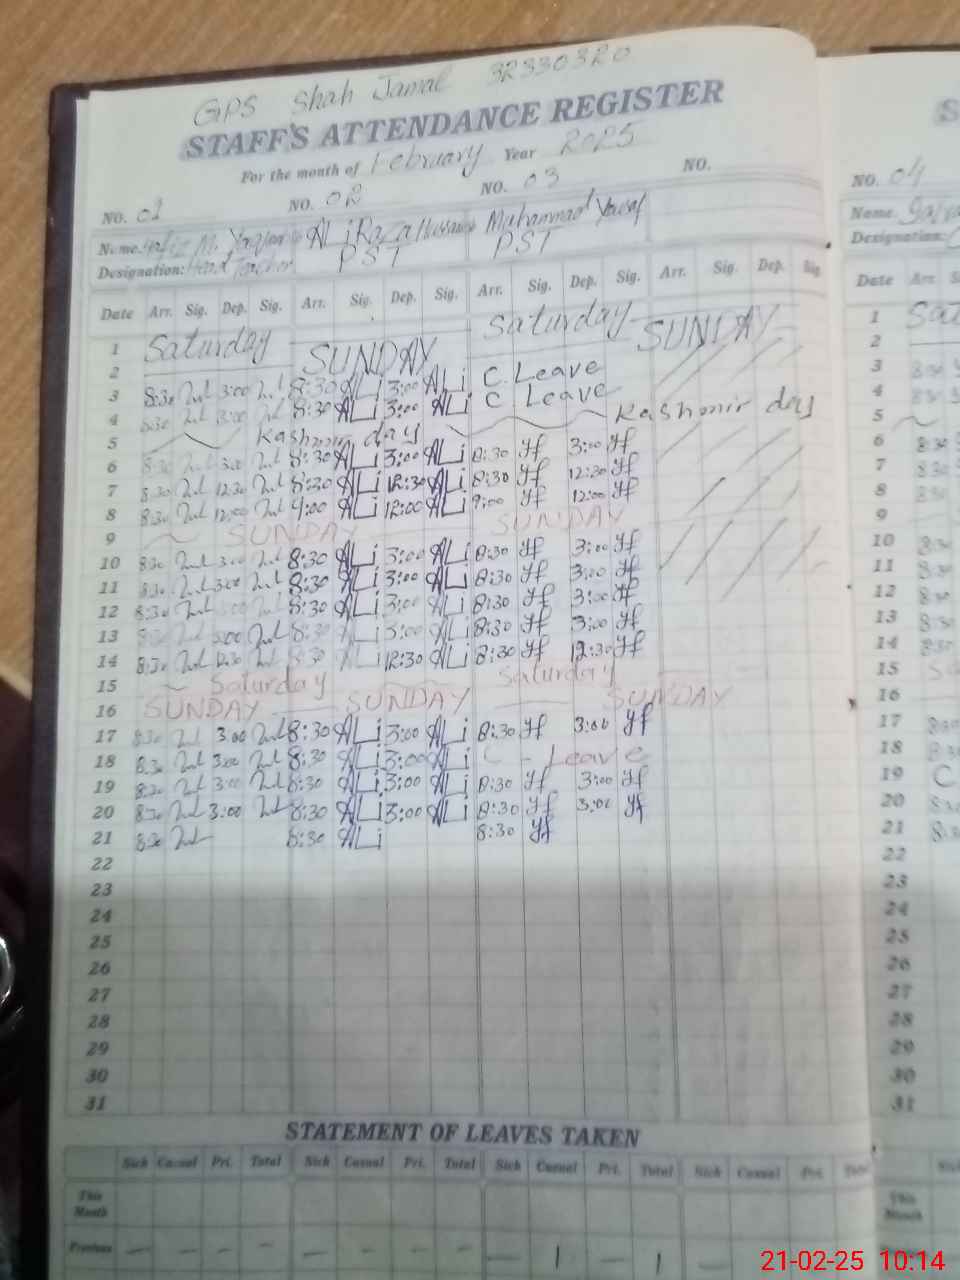 GPS Shah Jamal 32330320
STAFF'S ATTENDANCE REGISTER
For the month of February Year 2025
NO. 01 NO. 02 NO. 03 NO. NO. 04
Name. M. Yaqoob ALi Raza Hussain Muhammad Yousaf Name.
Designation: Head Teacher PST PST Designation:
Date Arr. Sig. Dep. Sig. Arr. Sig. Dep. Sig. Arr. Sig. Dep. Sig. Arr. Sig. Dep. Sig. Date Arr.
1 Saturday Saturday 1
2 SUNDAY SUNDAY 2
3 8:30 3:00 8:30 ALi 3:00 ALi C. Leave 3
4 8:30 3:00 8:30 ALi 3:00 ALi C Leave 4
5 Kashmir day Kashmir day 5
6 8:30 3:00 8:30 ALi 3:00 ALi 8:30 Yf 3:00 Yf 6 8:30
7 8:30 12:30 8:30 ALi 12:30 ALi 8:30 Yf 12:30 Yf 7 8:30
8 8:30 12:00 9:00 ALi 12:00 ALi 9:00 Yf 12:00 Yf 8
9 SUNDAY SUNDAY 9
10 8:30 3:00 8:30 ALi 3:00 ALi 8:30 Yf 3:00 Yf 10 8:30
11 8:30 3:00 8:30 ALi 3:00 ALi 8:30 Yf 3:00 Yf 11 8:30
12 8:30 3:00 8:30 ALi 3:00 ALi 8:30 Yf 3:00 Yf 12 8:30
13 8:30 3:00 8:30 ALi 3:00 ALi 8:30 Yf 3:00 Yf 13 8:30
14 8:30 12:30 8:30 ALi 12:30 ALi 8:30 Yf 12:30 Yf 14 8:30
15 Saturday Saturday 15
16 SUNDAY SUNDAY SUNDAY 16
17 8:30 3:00 8:30 ALi 3:00 ALi 8:30 Yf 3:00 Yf 17
18 8:30 3:00 8:30 ALi 3:00 ALi C - Leave 18
19 8:30 3:00 8:30 ALi 3:00 ALi 8:30 Yf 3:00 Yf 19 C
20 8:30 3:00 8:30 ALi 3:00 ALi 8:30 Yf 3:00 Yf 20
21 8:30 8:30 ALi 8:30 Yf 21
22 22
23 23
24 24
25 25
26 26
27 27
28 28
29 29
30 30
31 31
STATEMENT OF LEAVES TAKEN
Sick Casual Pri. Total Sick Casual Pri. Total Sick Casual Pri. Total Sick Casual Pri. Total
This Month This Month
Previous — — — — — — — — — 1 — 1 — Previous
21-02-25 10:14